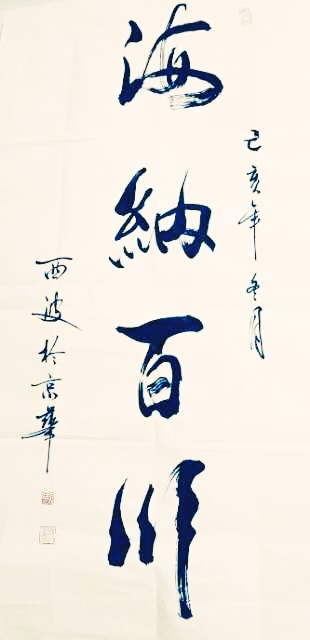 己亥年冬月
海纳百川
西波於京華